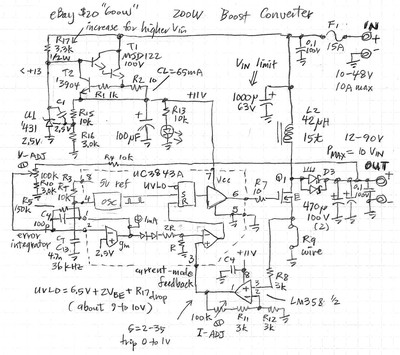 eBay $20 "600W" 200W Boost Converter
increase for higher Vin
R17
3.3K
1/2W
T1
MJD122
100V
F1
15A
IN
+
-
10-48V
10A max
0.1
100V
<+13
T2
'3904
R2 10
CL=65mA
R1 1K
+11V
VIN limit
1000µ
63V
L2
42µH
15t
U1
'431
2.5V
C1
2.5V
R15
10K
R16
3.0K
100µF
R13
10K
12-90V
PMAX = 10 VIN
OUT
V-ADJ
R4 10K
UC3843A
100K
R10
3.0K
R3
10K
8
5V ref
UVLO
7
Vcc
6
R7
10
Q1
D3
470µ
100V
(2)
0.1
100V
R5
150K
C4
100p
4
OSC
S
R
5
error
integrator
2
1
2.5V
gm
1mA
2R
R
C7
C13
4.7n
36KHz
3
current-mode
feedback
Rq
wire
R8
3K
C4
+11V
8
1
3
2
4
LM358 1/2
100K
I-ADJ
R11
3K
R12
3K
UVLO = 6.5V + 2VBE + R17 drop
(about 9 to 10V)
G = 2-35
trip 0 to 1V